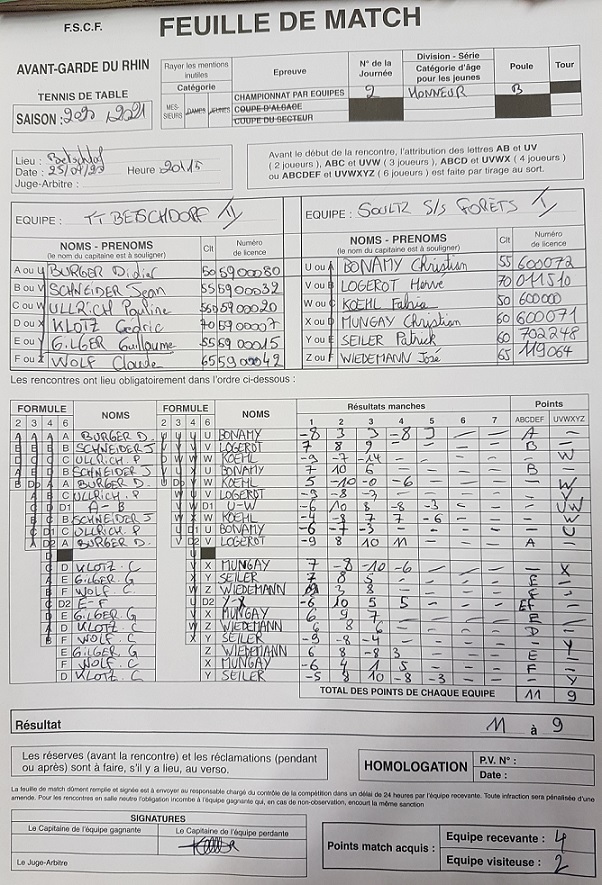 F.S.C.F. FEUILLE DE MATCH
AVANT-GARDE DU RHIN
TENNIS DE TABLE
SAISON : 2020 / 2021
Rayer les mentions inutiles
Catégorie
MES-SIEURS DAMES JEUNES
Epreuve
CHAMPIONNAT PAR EQUIPES
COUPE D'ALSACE
COUPE DU SECTEUR
N° de la Journée
2
Division - Série
Catégorie d'âge pour les jeunes
HONNEUR
Poule
B
Tour
Lieu : Betschdorf
Date : 25/09/20 Heure 20H15
Juge-Arbitre :
Avant le début de la rencontre, l'attribution des lettres AB et UV
( 2 joueurs ), ABC et UVW ( 3 joueurs ), ABCD et UVWX ( 4 joueurs )
ou ABCDEF et UVWXYZ ( 6 joueurs ) est faite par tirage au sort.
EQUIPE : TT BETSCHDORF
EQUIPE : SOULTZ S/S FORÊTS
NOMS - PRENOMS (le nom du capitaine est à souligner) Clt Numéro de licence
A ou U BURGER Didier 50 59000080
B ou V SCHNEIDER Jean 55 59000032
C ou W ULLRICH Pauline 55D 59000020
D ou X KLOTZ Cedric 70 59000007
E ou Y GILGER Guillaume 55 59000015
F ou Z WOLF Claude 65 59000042
NOMS - PRENOMS (le nom du capitaine est à souligner) Clt Numéro de licence
U ou A BONAMY Christian 55 600072
V ou B LOGEROT Herve 70 011510
W ou C KOEHL Fabia 50 600000
X ou D MUNGAY Christian 60 600071
Y ou E SEILER Patrick 60 702248
Z ou F WIEDEMANN José 65 119064
Les rencontres ont lieu obligatoirement dans l'ordre ci-dessous :
FORMULE NOMS FORMULE NOMS Résultats manches Points
2 3 4 6 2 3 4 6 1 2 3 4 5 6 7 ABCDEF UVWXYZ
A BURGER D. U BONAMY -8 3 3 -8 5 - - A -
B SCHNEIDER J V LOGEROT 7 8 9 - - - - B -
C ULLRICH. P W KOEHL -9 -7 -14 - - - - - W
B SCHNEIDER J U BONAMY 7 10 6 - - - - B -
A BURGER D. W KOEHL 5 -10 -0 -6 - - - - W
C ULLRICH. P V LOGEROT -9 -8 -3 - - - - - V
D1 A - B D1 U-W -6 10 8 -8 -3 - -
B SCHNEIDER J W KOEHL -4 -8 7 7 -6 - - - W
C ULLRICH. P U BONAMY -6 -7 -3 - - - - - U
A BURGER D. V LOGEROT -9 8 10 11 - - - A -
D KLOTZ. C X MUNGAY 7 -8 -10 -6 - - - - X
E GILGER. G Y SEILER 7 8 5 - - - - E -
F WOLF. C Z WIEDEMANN 3 8 - - - - F -
D2 E-F D2 Y-X -6 10 5 5 - - - EF -
E GILGER. G X MUNGAY 6 9 7 - - - - E -
D KLOTZ. C Z WIEDEMANN 6 8 6 - - - - D -
F WOLF. C Y SEILER -9 -8 -4 - - - - - Y
E GILGER. G Z WIEDEMANN 6 8 -8 3 - - - E -
F WOLF. C X MUNGAY -6 4 1 5 - - - F -
D KLOTZ. C Y SEILER -5 8 10 -8 -3 - - - Y
TOTAL DES POINTS DE CHAQUE EQUIPE 11 9
Résultat 11 à 9
Les réserves (avant la rencontre) et les réclamations (pendant
ou après) sont à faire, s'il y a lieu, au verso.
HOMOLOGATION P.V. N° :
Date :
La feuille de match dûment remplie et signée est à envoyer au responsable chargé du contrôle de la compétition dans un délai de 24 heures par l'équipe recevante. Toute infraction sera pénalisée d'une
amende. Pour les rencontres en salle neutre l'obligation incombe à l'équipe gagnante qui, en cas de non-observation, encourt la même sanction
SIGNATURES
Le Capitaine de l'équipe gagnante Le Capitaine de l'équipe perdante
Le Juge-Arbitre
Points match acquis : Equipe recevante : 4
Equipe visiteuse : 2